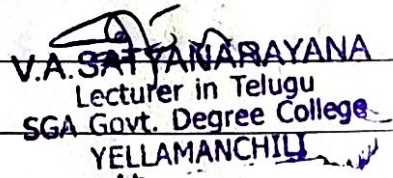 V.A.SATYANARAYANA
Lecturer in Telugu
SGA Govt. Degree College
YELLAMANCHILI